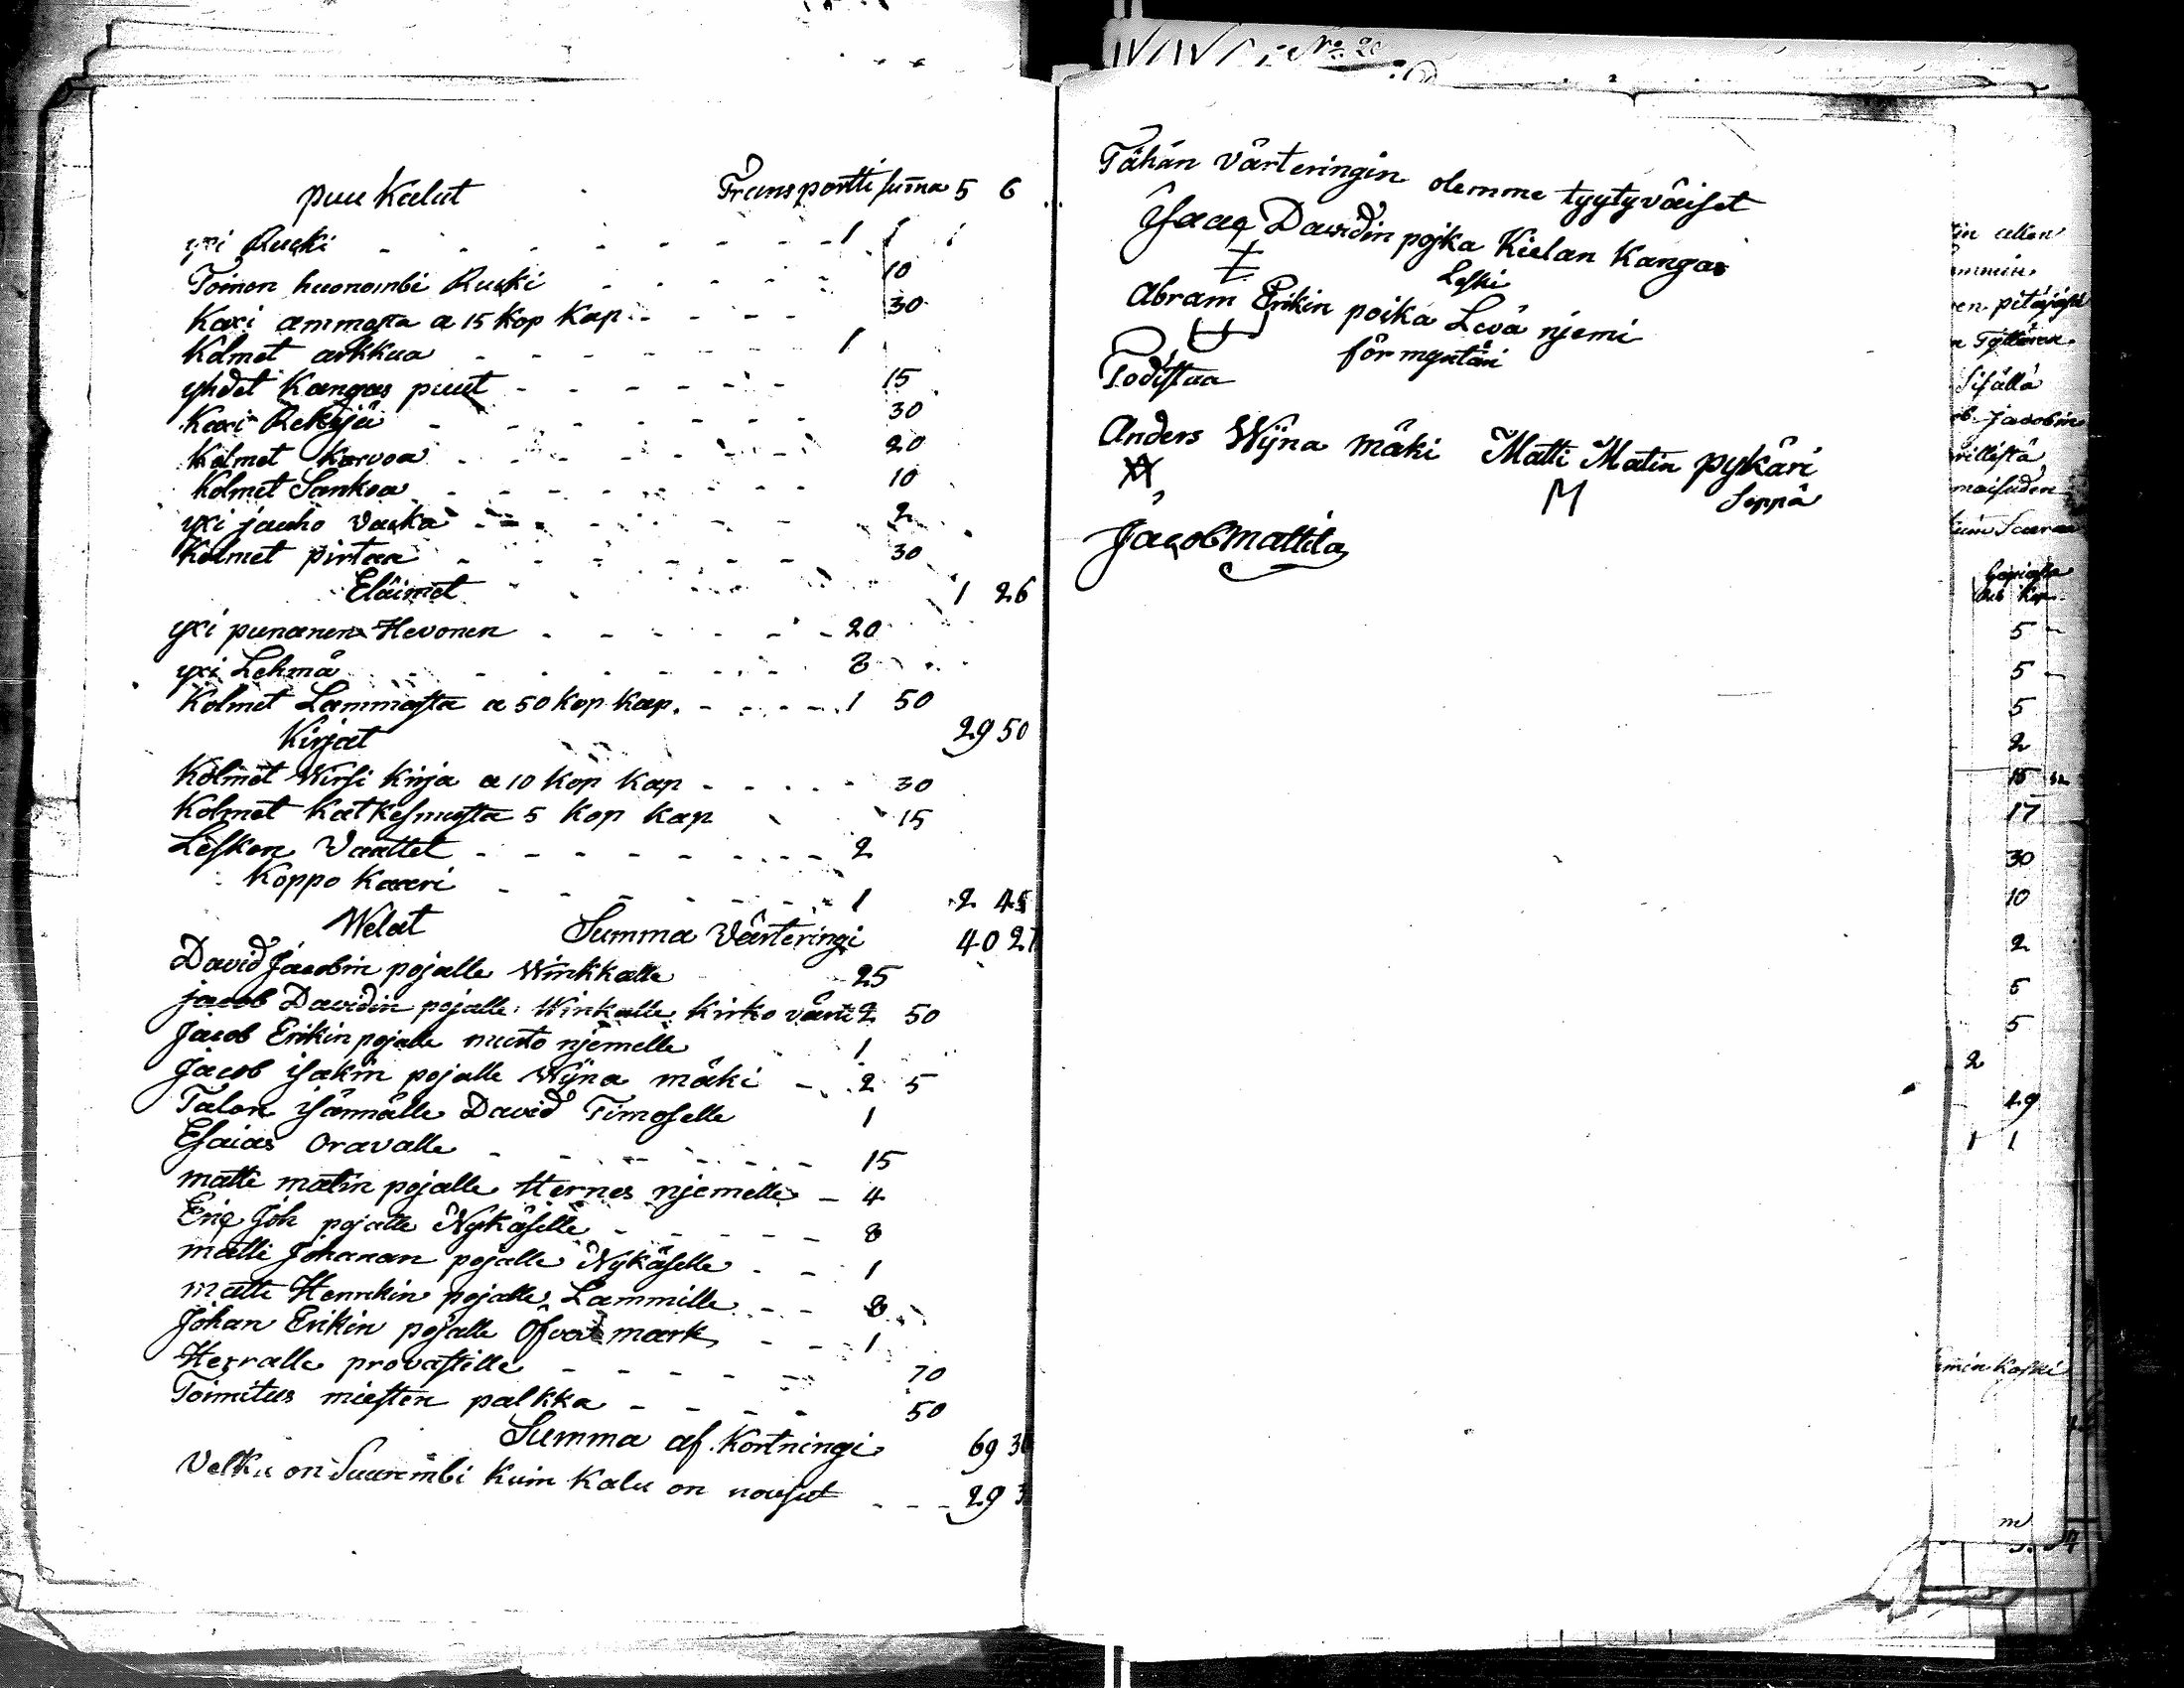 puu Kalut Transportti suma 5 6
yxi Rucki 1
Toinen huonombi Rucki 10
Kaxi ammasta a 15 kop kap 30
Kolmet arkkua 1
yhdet Kangas puut 15
Kaxi Rekejä 30
Kolmet Korvoa 20
Kolmet Sankoa 10
yxi jauho vacka 2
Kolmet pirtaa 30
Eläimet 1 26
yxi punanen Hevonen 20
yxi Lehmä 8
Kolmet Lammasta a 50 kop kap. 1 50
Kirjat 29 50
Kolmet Wirsi kirja a 10 kop kap 30
Kolmet Katkesmusta 5 kop kap 15
Lesken Vaattet 2
Koppo Kaari 1 2 45
Welat Summa Värteringi 40 27
David Jacobin pojalle Winkkalle 25
jacob Davidin pojalle Winkalle kirko värti 2 50
Jacob Erikin pojalle musto njemelle 1
Jacob isakin pojalle Wijna mäki 2 5
Talon isännälle David Timoselle 1
Esaias Oravalle 15
matti matin pojalle Hernes njemelle 4
Eriq Joh pojalle Nykäselle 8
matti Johanan pojalle Nykäselle 1
matti Henrikin pojalle Lammille 8
Johan Erikin pojalle Öfver mark 1
Herralle provastille 70
Toimitus miesten palkka 50
Summa af kortningi 69 30
Velka on Suurembi kuin Kalu on nousut 29 3
No 20
Tähän värteringin olemme tyytyväiset
Isaaq Davidin pojka Kielan Kangas
Leski
Abram Erikin poika Levä njemi
förmyntäri
Todistaa
Anders Wijna mäki Matti Matin pykäri
M Seppä
Jacob Mattila